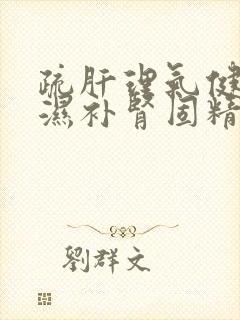 疏肝理氣健
濕补腎固精
劉群文